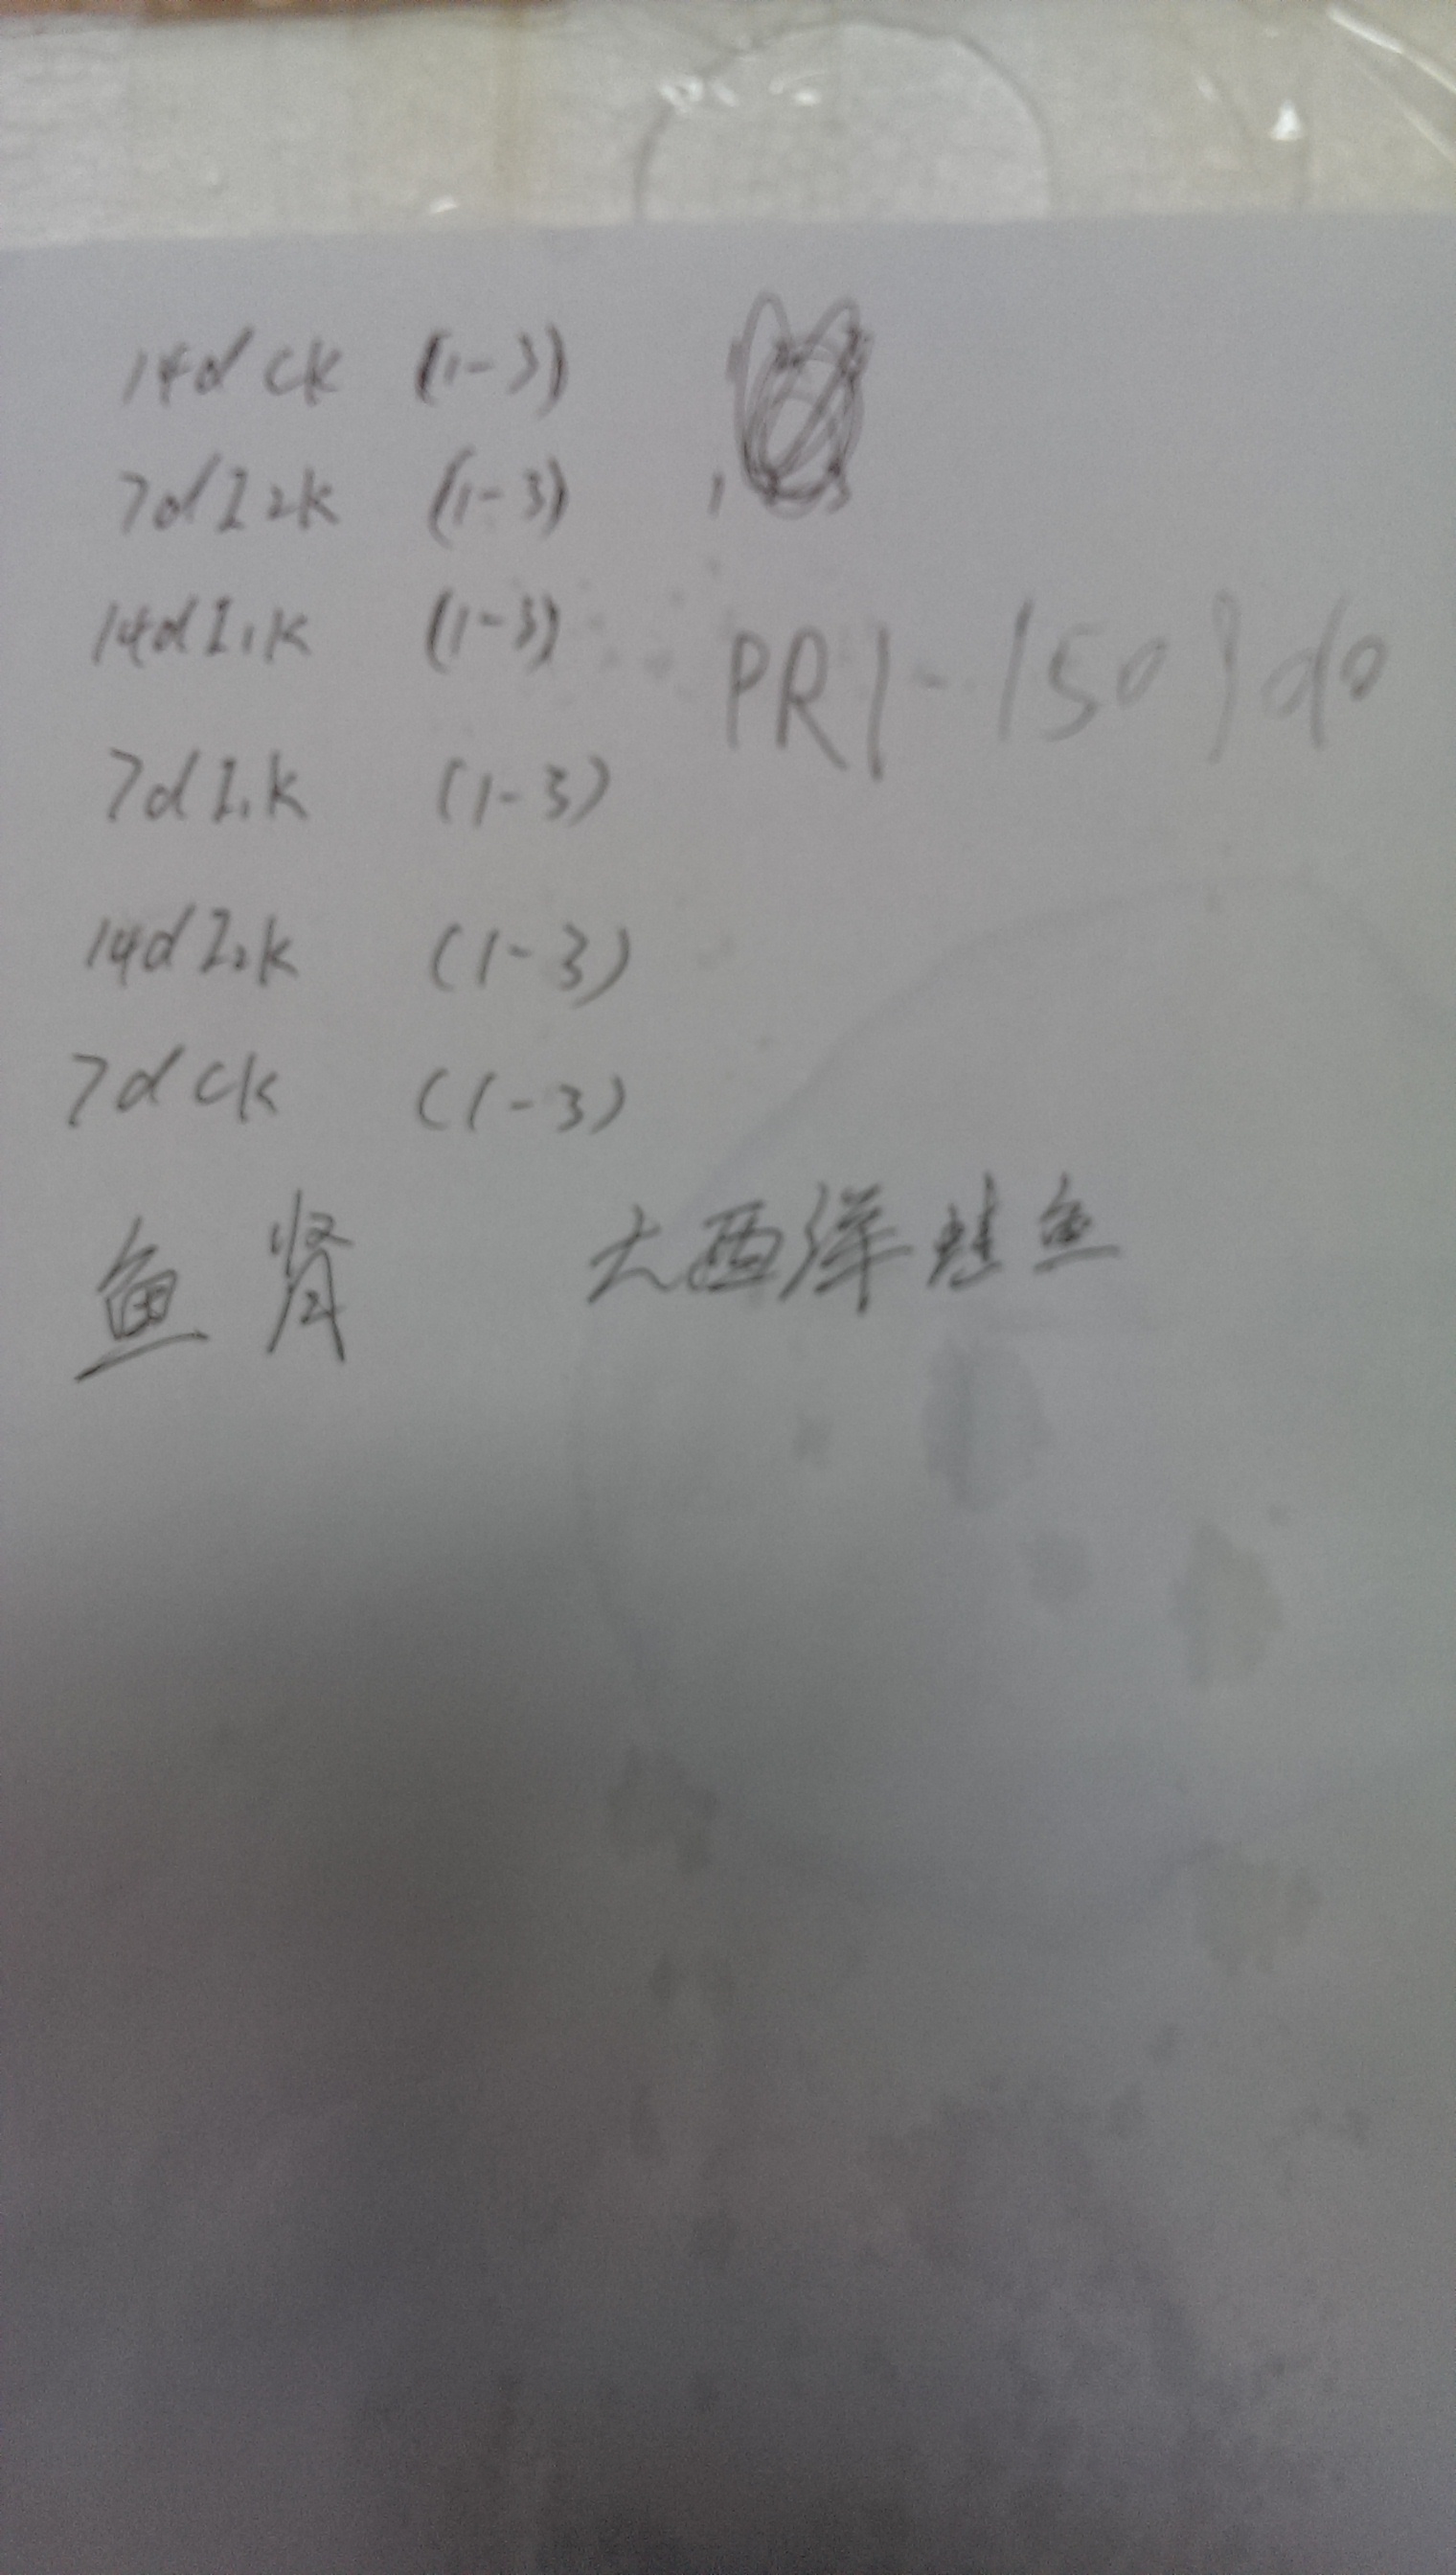 14d CK (1-3)
7d I2K (1-3)
14d I1K (1-3)
PR1-1509d0
7d I1K (1-3)
14d I2K (1-3)
7d CK (1-3)
鱼肾 大西洋鲑鱼